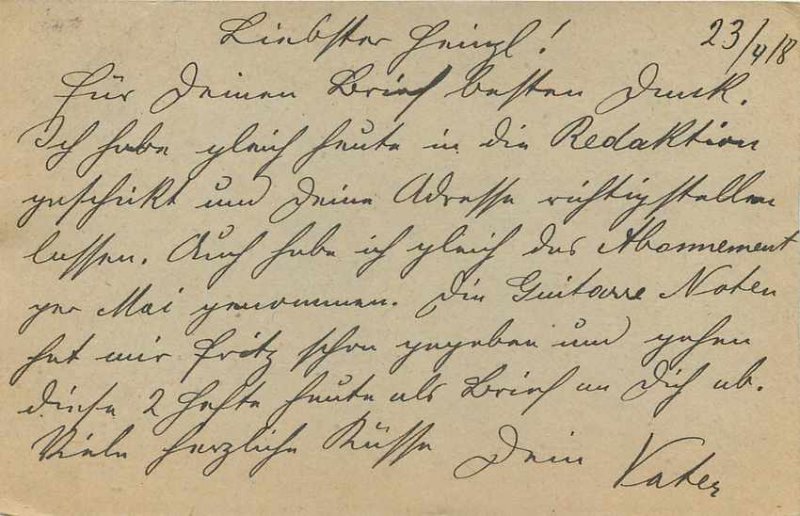 23/4/18
Liebster Heinzl!
Für Deinen Brief besten Dank.
Ich habe gleich heute in die Redaktion
geschickt und Deine Adresse richtigstellen
lassen. Auch habe ich gleich das Abonnement
per Mai genommen. Die Guitarre Noten
hat mir Fritz schon gegeben und gehen
diese 2 Hefte heute als Brief an Dich ab.
Viele herzliche Küsse Dein Vater